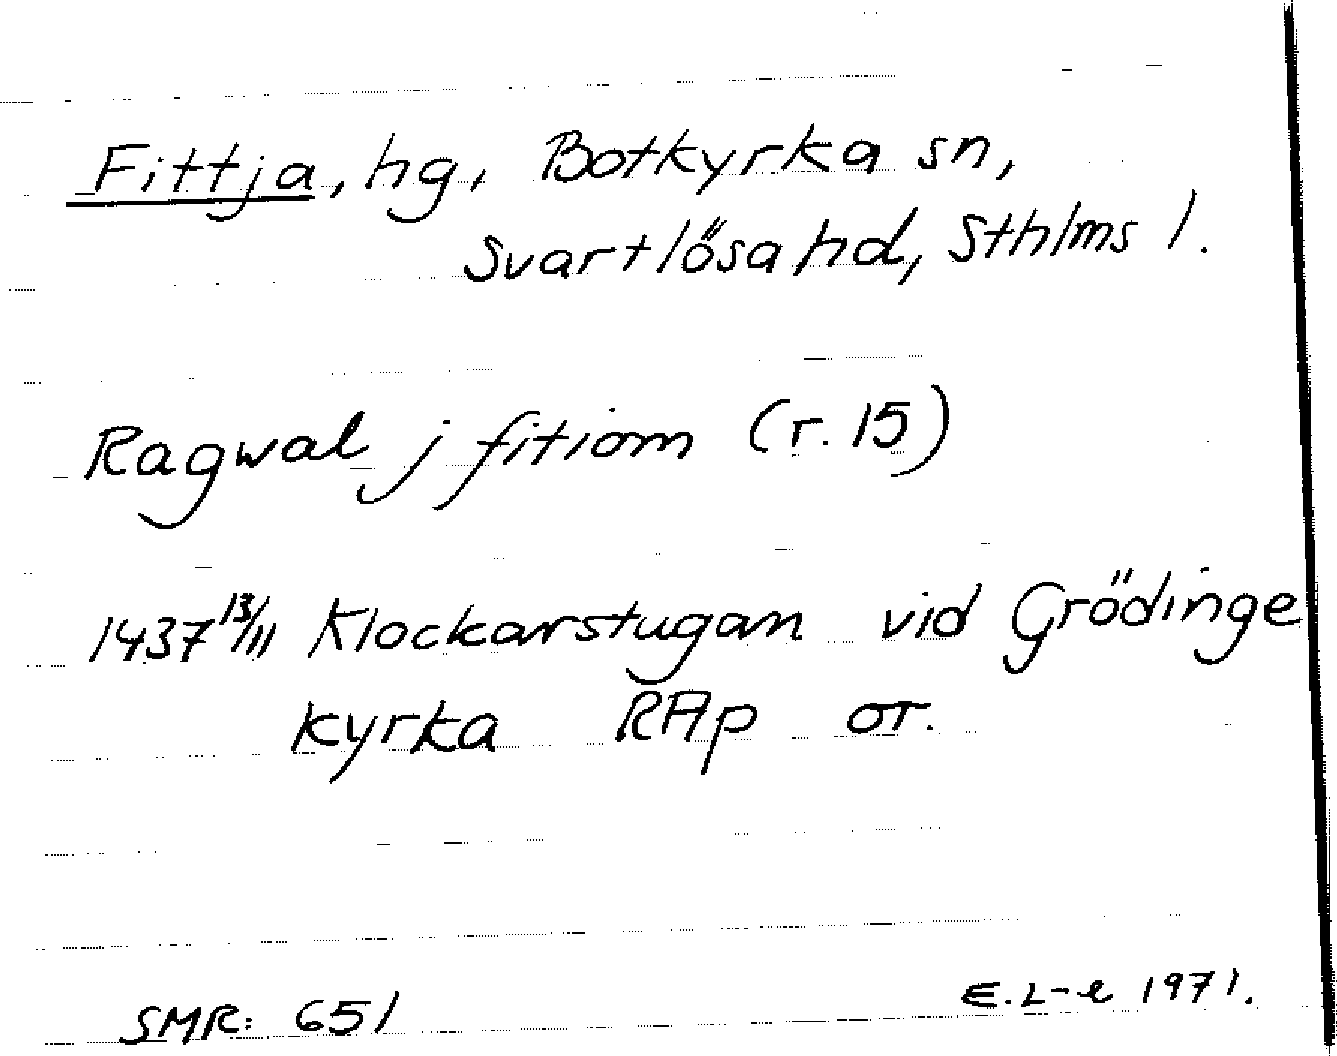 Fittja, hg, Botkyrka sn,
Svartlösa hd, Sthlms l.
Ragwal j fitiom (r. 15)
1437 13/11 Klockarstugan vid Grödinge
kyrka RAp or.
SMR: 651
E. L-e 1971.